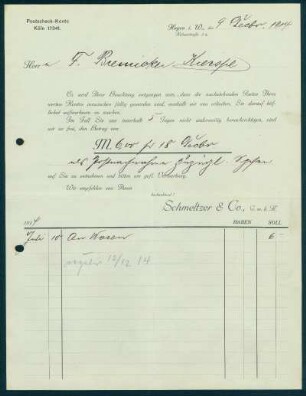 Postscheck-Konto
Köln 17541.
Hagen i. W., den 9 Dezbr. 1914
Herrn F. Bremicker, Kierspe
Es wird Ihrer Beachtung entgangen sein, dass die nachstehenden Posten Ihres
werten Kontos inzwischen fällig geworden sind, weshalb wir uns erlauben, Sie darauf höfl.
aufmerksam zu machen.
Im Falle Sie uns innerhalb 5 Tagen nicht anderweitig benachrichtigen, sind
wir so frei, den Betrag von
M. 6.00 p 15 Dezbr
als Postnachnahme zuzügl. Spesen
auf Sie zu entnehmen und bitten um gefl. Einlösung.
Wir empfehlen uns Ihnen
hochachtend!
Schmeltzer & Co., G. m. b. H.
1914 HABEN SOLL
18 An Waren 6
12/12 14